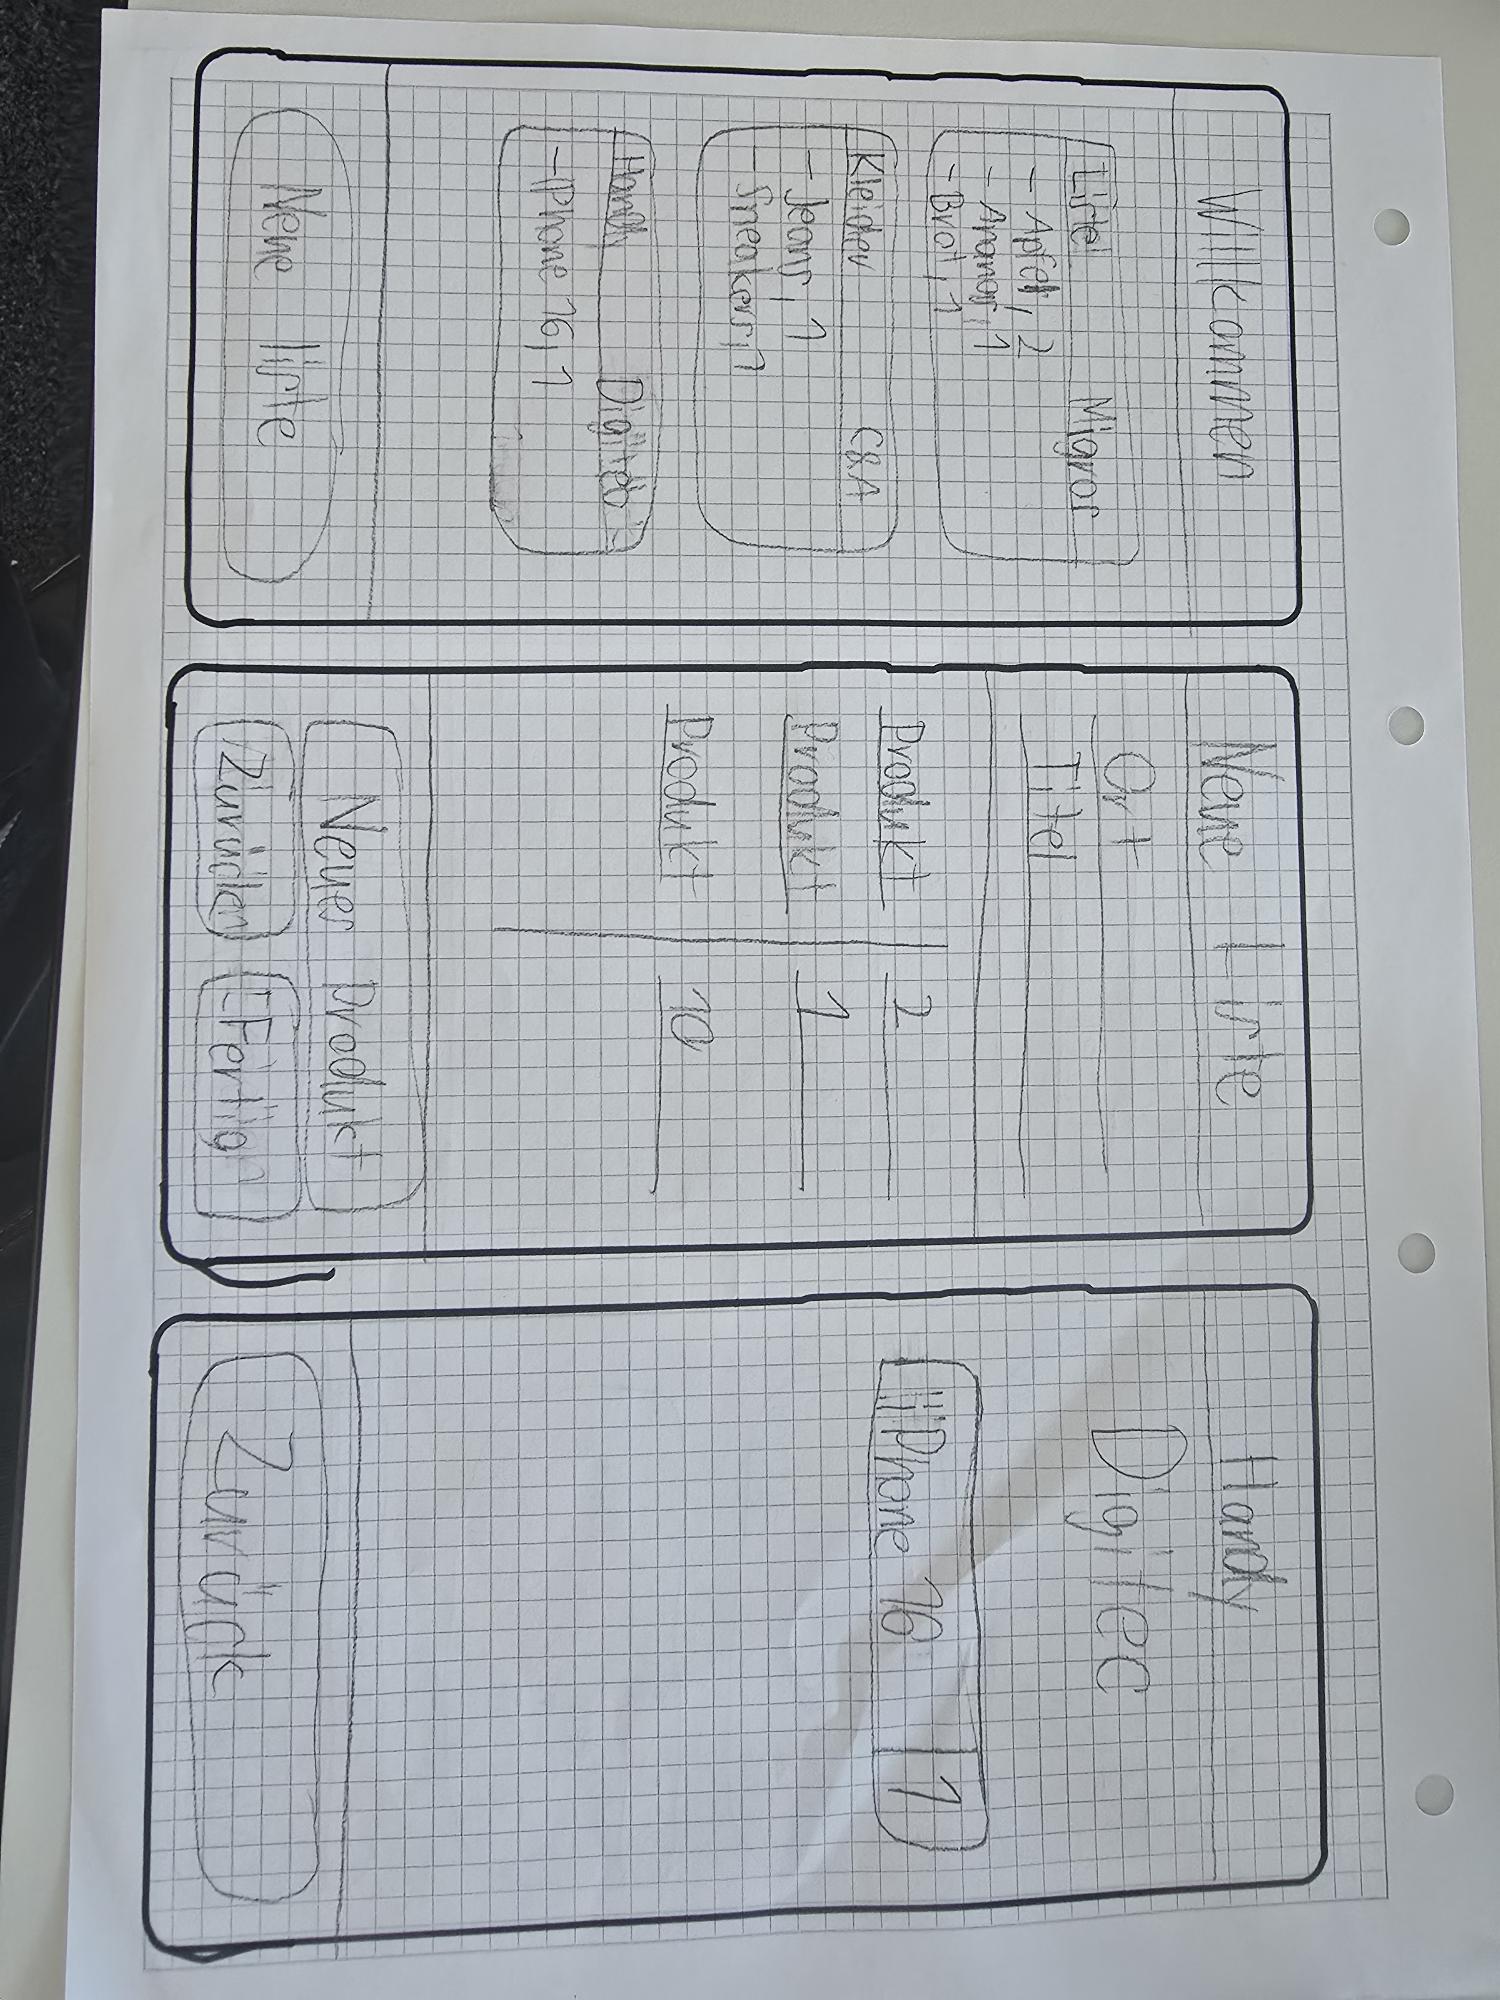 Willkommen
Liste Migros
- Apfel, 2
- Ananas, 1
- Brot, 1
Kleider C&A
- Jeans, 1
- Sneakers, 1
Handy Digitec
- IPhone 16, 1
Neue liste
Neue Liste
Ort
Titel
Produkt 2
Produkt 1
Produkt 10
Neues Produkt
Fertig
Handy
Digitec
IPhone 16 1
Zurück